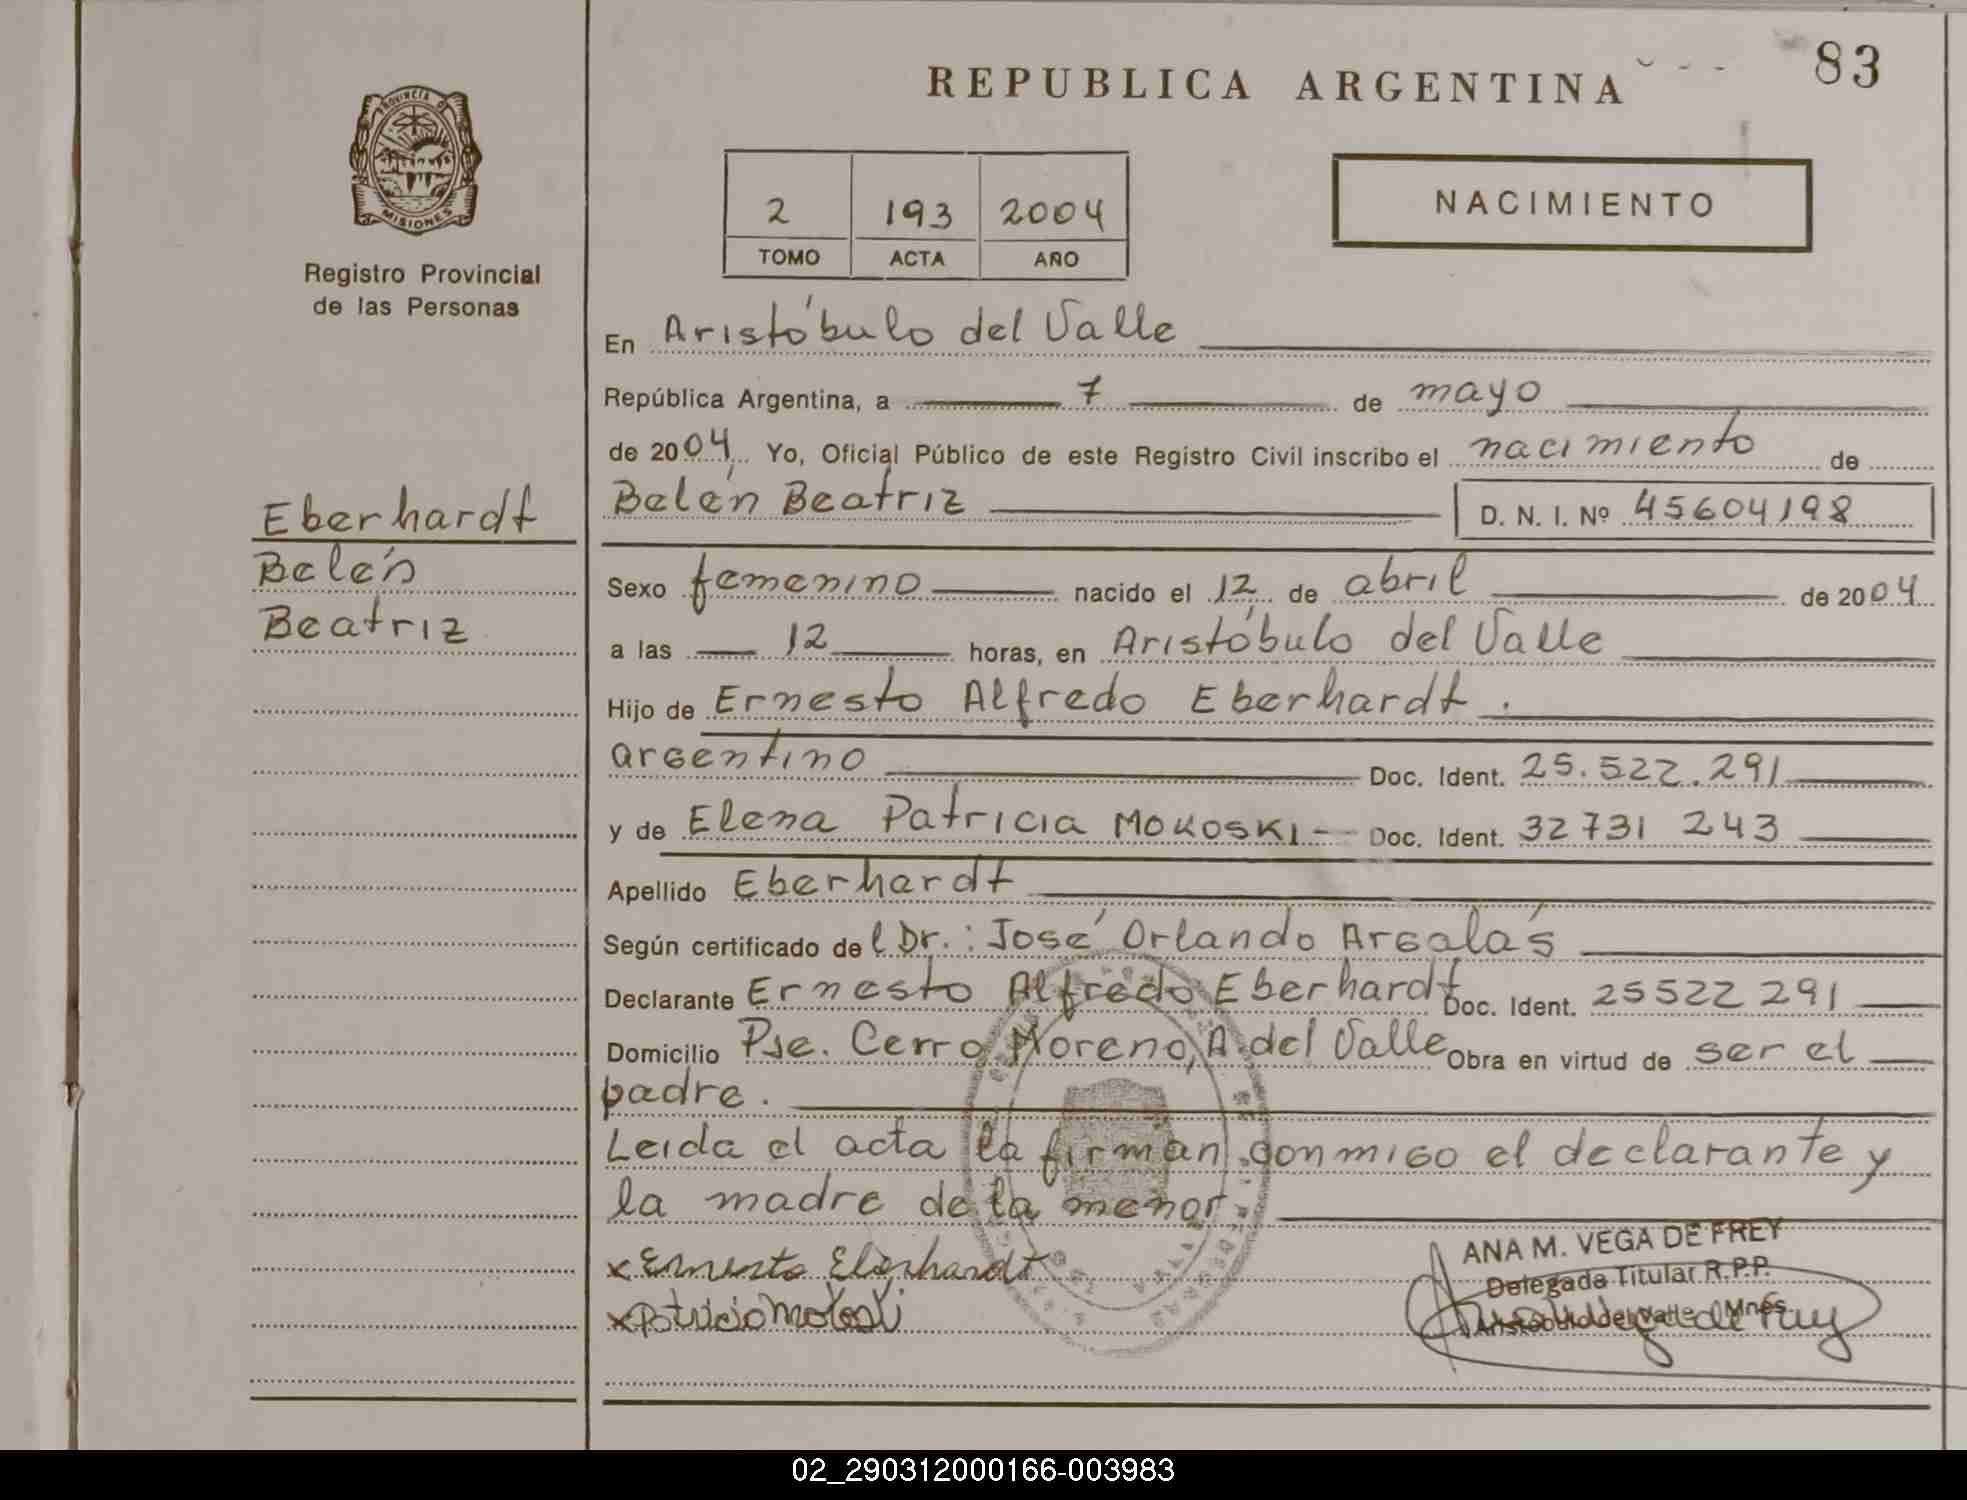 83
REPUBLICA ARGENTINA
PROVINCIA D
MISIONES
Registro Provincial
de las Personas
2 193 2004
TOMO ACTA AÑO
NACIMIENTO
En Aristóbulo del Valle
República Argentina, a 7 de mayo
de 2004 Yo, Oficial Público de este Registro Civil inscribo el nacimiento de
Belén Beatriz D. N. I. Nº 45604198
Eberhardt
Belén
Beatriz
Sexo femenino nacido el 12 de abril de 2004
a las 12 horas, en Aristóbulo del Valle
Hijo de Ernesto Alfredo Eberhardt.
argentino Doc. Ident. 25.522.291
y de Elena Patricia Mokoski - Doc. Ident. 32731 243
Apellido Eberhardt
Según certificado del Dr.: José Orlando Argalás
Declarante Ernesto Alfredo Eberhardt Doc. Ident. 25522 291
Domicilio Pje. Cerro Moreno, A. del Valle Obra en virtud de ser el
padre.
Leida el acta la firman conmigo el declarante y
la madre de la menor
x Ernesto Eberhardt
x Patricia Mokoski
ANA M. VEGA DE FREY
Delegada Titular R.P.P.
Aristóbulo del Valle Mnes.
02_290312000166-003983